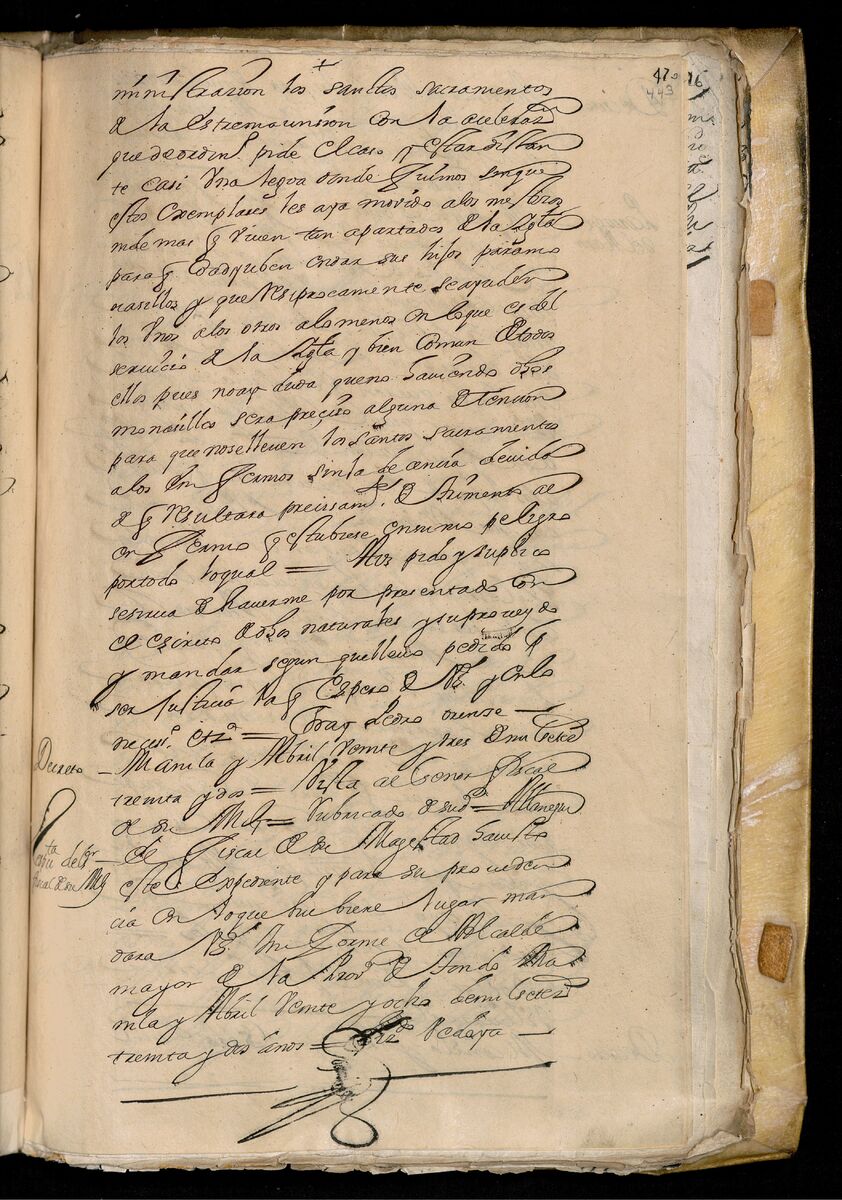 +
47
443
16
ministrazion los sanctos sacramentos
de la estremaunsion con la celeridad
que de ordin.º pide el caso y estar distan
te casi una legua donde sin que
estos exemplares les aya movido a los maestros
ni demas q viven tan apartados de la Igla
para q coadyuben en dar sus hijos para mo
nasillos y que resiprocamente se ayuden
los unos a los otros a lo menos en lo que es del
servicio de la Igla y bien comun de todos
ellos pues no ay duda que no haviendo dhos
monasillos sera preciso alguna detencion
para que no se lleven los santos sacramentos
a los enfermos sin la decencia devida
de q resultara precissamte detrimento al
enfermo q estubiese en sumo peligro
por todo lo qual = A Vs pido y suplico
se sirva de haverme por presentado con
el escripto de dhos naturales y su provey do
y mandar segun que llevo pedido p
ser justicia la q espero de Vs. y en lo
neces.º etz.ª = Fray Pedro orense —
Decreto
– Manila y Abril veinte y tres de mil setes
treinta y dos = Vista al señor fiscal
de su Mg = Rubricado de su sª =
Rta del sr
fiscal de su Mg
– el fiscal de su Magestad ha visto
este expediente y para su providen
cia en lo que hubiere lugar man
dara Vs. informe el Alcalde
mayor de la Prov.ª de tondo Ma
nila y Abril veinte y ocho de mil setez
treinta y dos años = Bedoya —